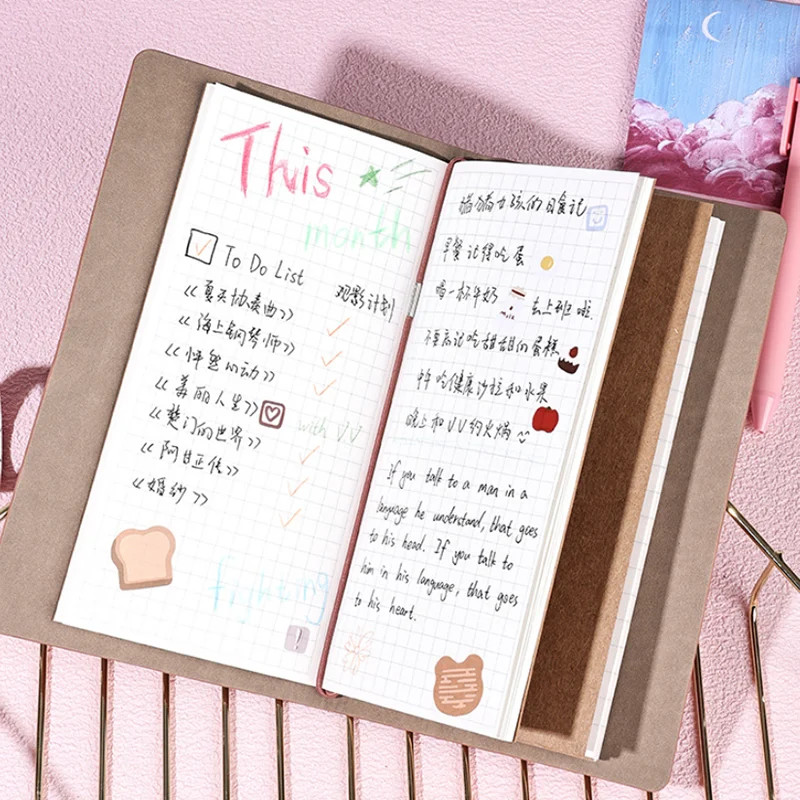 This
month
To Do List
观影计划
《夏天协奏曲》
《海上钢琴师》
《怦然心动》
《美丽人生》
with VV
《楚门的世界》
《阿甘正传》
《婚纱》
fighting
!
孩的日食记
早餐记得吃蛋
喝一杯牛奶 去上班啦.
不要忘记吃甜甜的蛋糕
吃健康沙拉和水果
晚上和VV约火锅
If you talk to a man in a
language he understand, that goes
to his head. If you talk to
him in his language, that goes
to his heart.